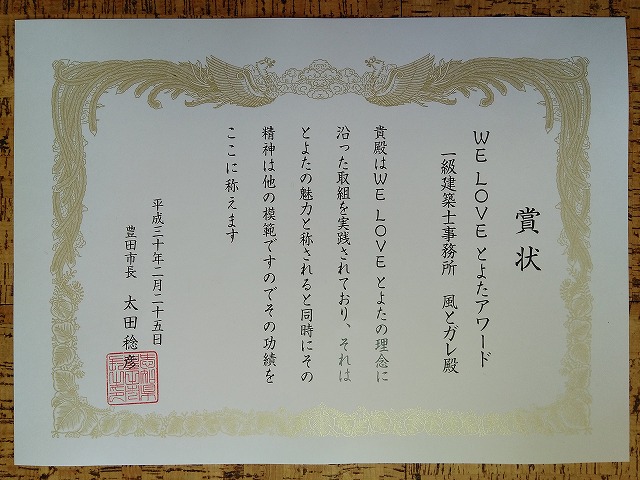 賞状
WE LOVE とよたアワード
一級建築士事務所 風とガレ殿
貴殿はWE LOVE とよたの理念に
沿った取組を実践されており、それは
とよたの魅力と称されると同時にその
精神は他の模範ですのでその功績を
ここに称えます
平成三十年二月二十五日
豊田市長 太田稔彦